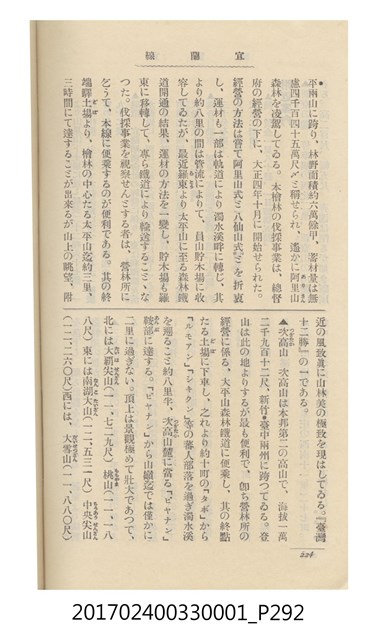 宜蘭線
平兩山に跨り、林野面積約六萬餘甲、蓄材量は無
慮四千百四十五萬尺〆と稱せられ、遙かに阿里山
森林を凌駕してゐる。本檜林の伐採事業は、總督
府の經營の下に、大正四年十月に開始せられた。
經營の方法は嘗て阿里山式と八仙山式とを折衷
し、運材も一部は軌道により濁水溪畔に轉じ、其れ
より約八里の間は管流によつて、員山貯木場に收
容してゐたが、最近羅東より太平山に至る森林鐵
道開通の結果、運材の方法を一變し、貯木場も羅
東に移轉して、專ら鐵道により輸送することゝな
つた。伐採事業を視察せんとする者は、營林所に
乞うて、本線に便乘するのが便利である。其の終
端驛土場より、檜林の中心たる太平山迄約三里、
三時間にて達することが出來るが、山上の眺望、附
近の風致眞に山林美の極致を現はしてゐる。『臺灣
十二勝』の一である。
▲次高山 次高山は本邦第二の高山で、海拔一萬
二千九百十二尺、新竹・臺中兩州に跨つてゐる。登
山は此の地よりするが最も便利で、卽ち營林所の
經營に係る、太平山森林鐵道に便乘し、其の終點
たる土場に下車し、之れより約十町の「タボ」から
「ルモアン」「シキクン」等の蕃人部落を過ぎ濁水溪
を遡ること約八里半、次高山麓に當る「ピヤナン」
鞍部に達する。「ピヤナン」から山巓迄では僅かに
二里に過ぎない。頂上は景觀極めて壯大であつて、
北には大霸尖山(一一、七三九尺) 桃山(一一、一八
八尺) 東には南湖大山(一二、五三一尺) 中央尖山
(一二、二六〇尺)西には、大雪山(一一、八八〇尺)
224
201702400330001_P292